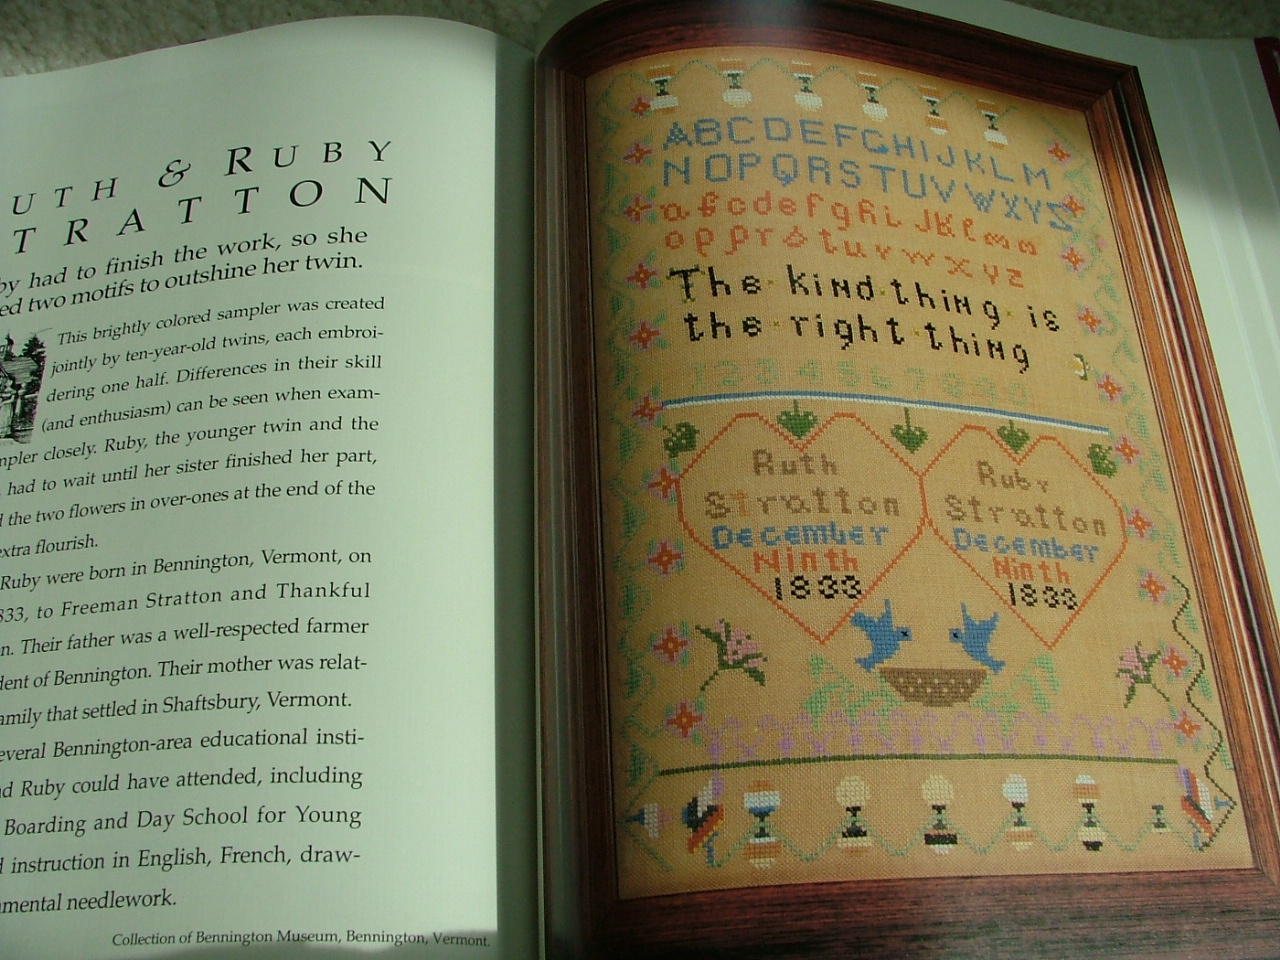 UTH & RUBY
TRATTON
by had to finish the work, so she
ed two motifs to outshine her twin.
This brightly colored sampler was created
jointly by ten-year-old twins, each embroi-
dering one half. Differences in their skill
(and enthusiasm) can be seen when exam-
mpler closely. Ruby, the younger twin and the
had to wait until her sister finished her part,
d the two flowers in over-ones at the end of the
extra flourish.
Ruby were born in Bennington, Vermont, on
833, to Freeman Stratton and Thankful
n. Their father was a well-respected farmer
dent of Bennington. Their mother was relat-
amily that settled in Shaftsbury, Vermont.
everal Bennington-area educational insti-
nd Ruby could have attended, including
Boarding and Day School for Young
d instruction in English, French, draw-
amental needlework.
Collection of Bennington Museum, Bennington, Vermont.
ABCDEFGHIJKLM
NOPQRSTUVWXYZ
abcdefghi JKlmn
opprstuvwxyz
The kind thing is
the right thing
Ruth
Stratton
December
Ninth
1833
Ruby
Stratton
December
Ninth
1833